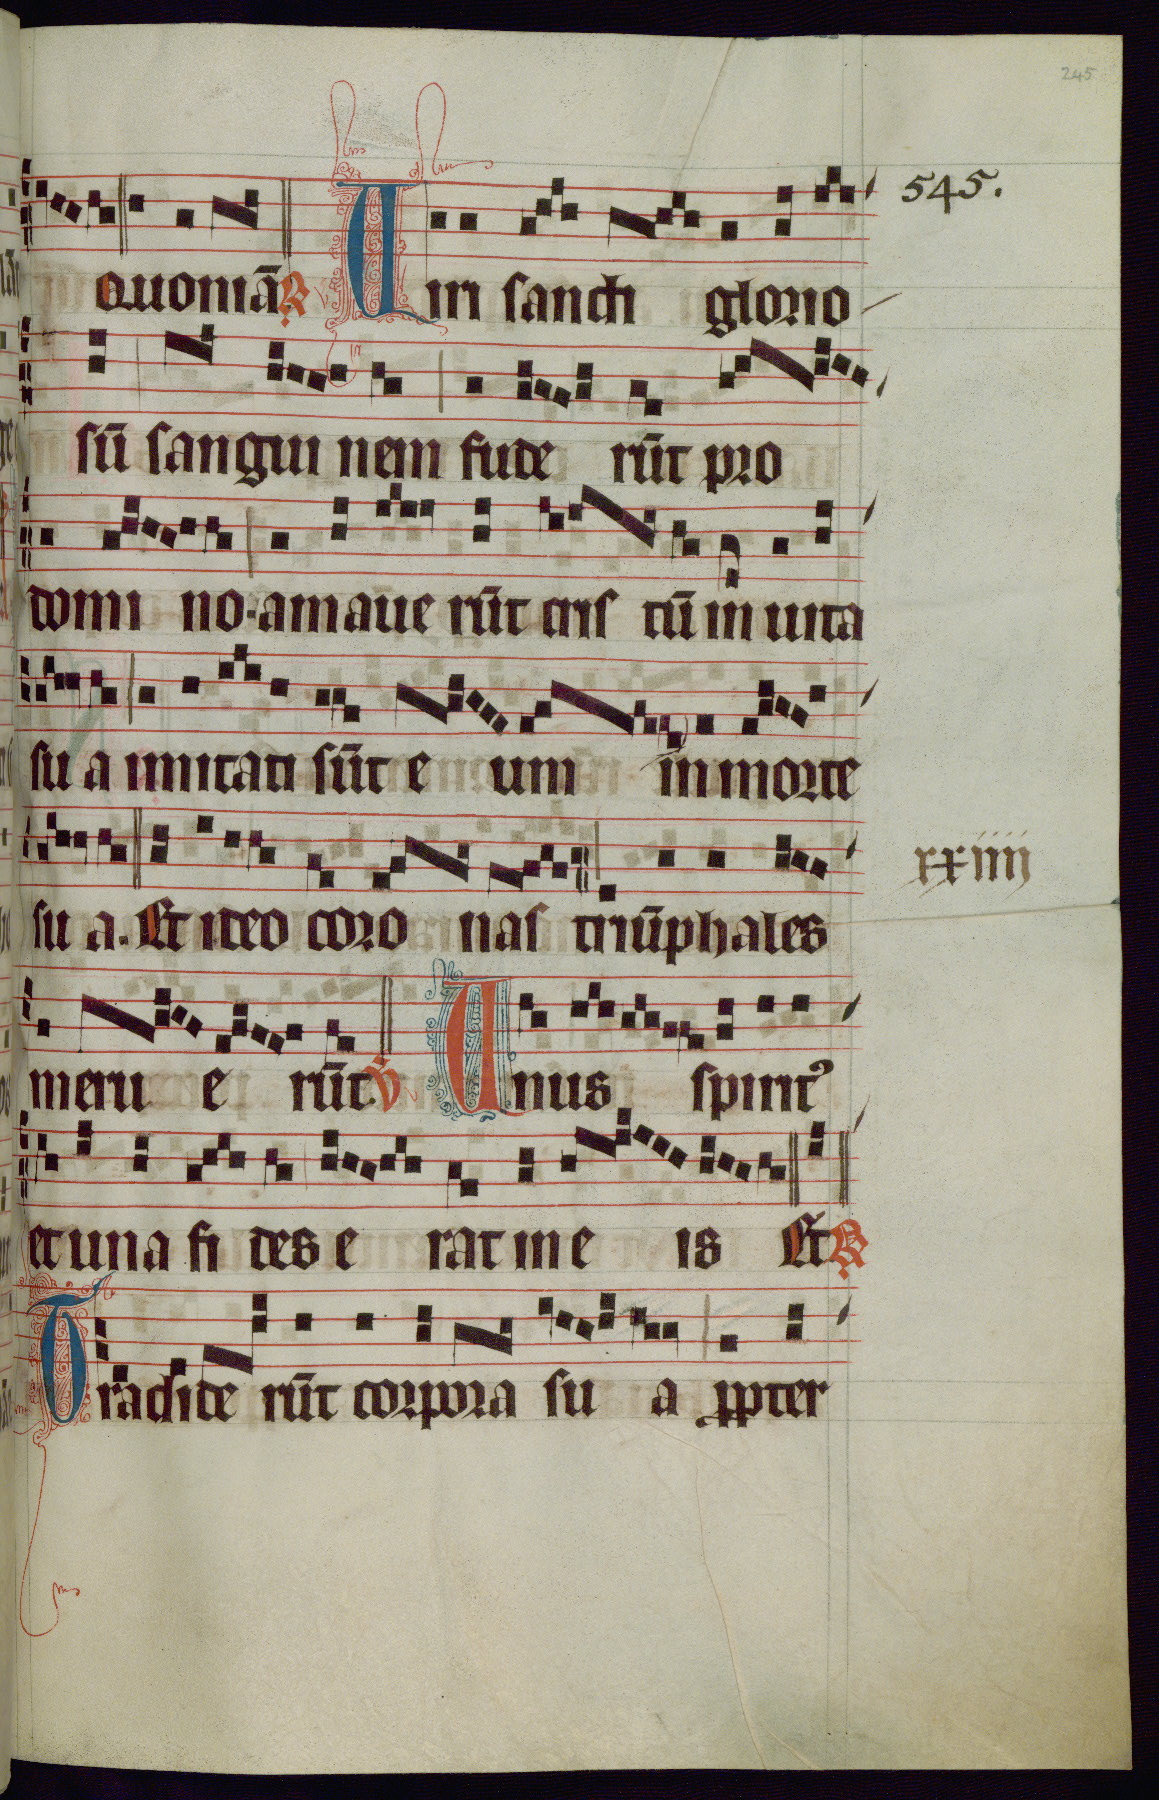 245
545.
Quoniā R Uiri sancti glorio
sū sangui nem fude rūt pro
domi no·amaue rūt cris tū in uita
su a imitati sūt e um in morte
su a. Et ideo coro nas triūphales
xxiiii
meru e rūt. V Unus spirit⁹
et una fi des e rat in e is Et R
Tradide rūt corpora su a ꝓpter